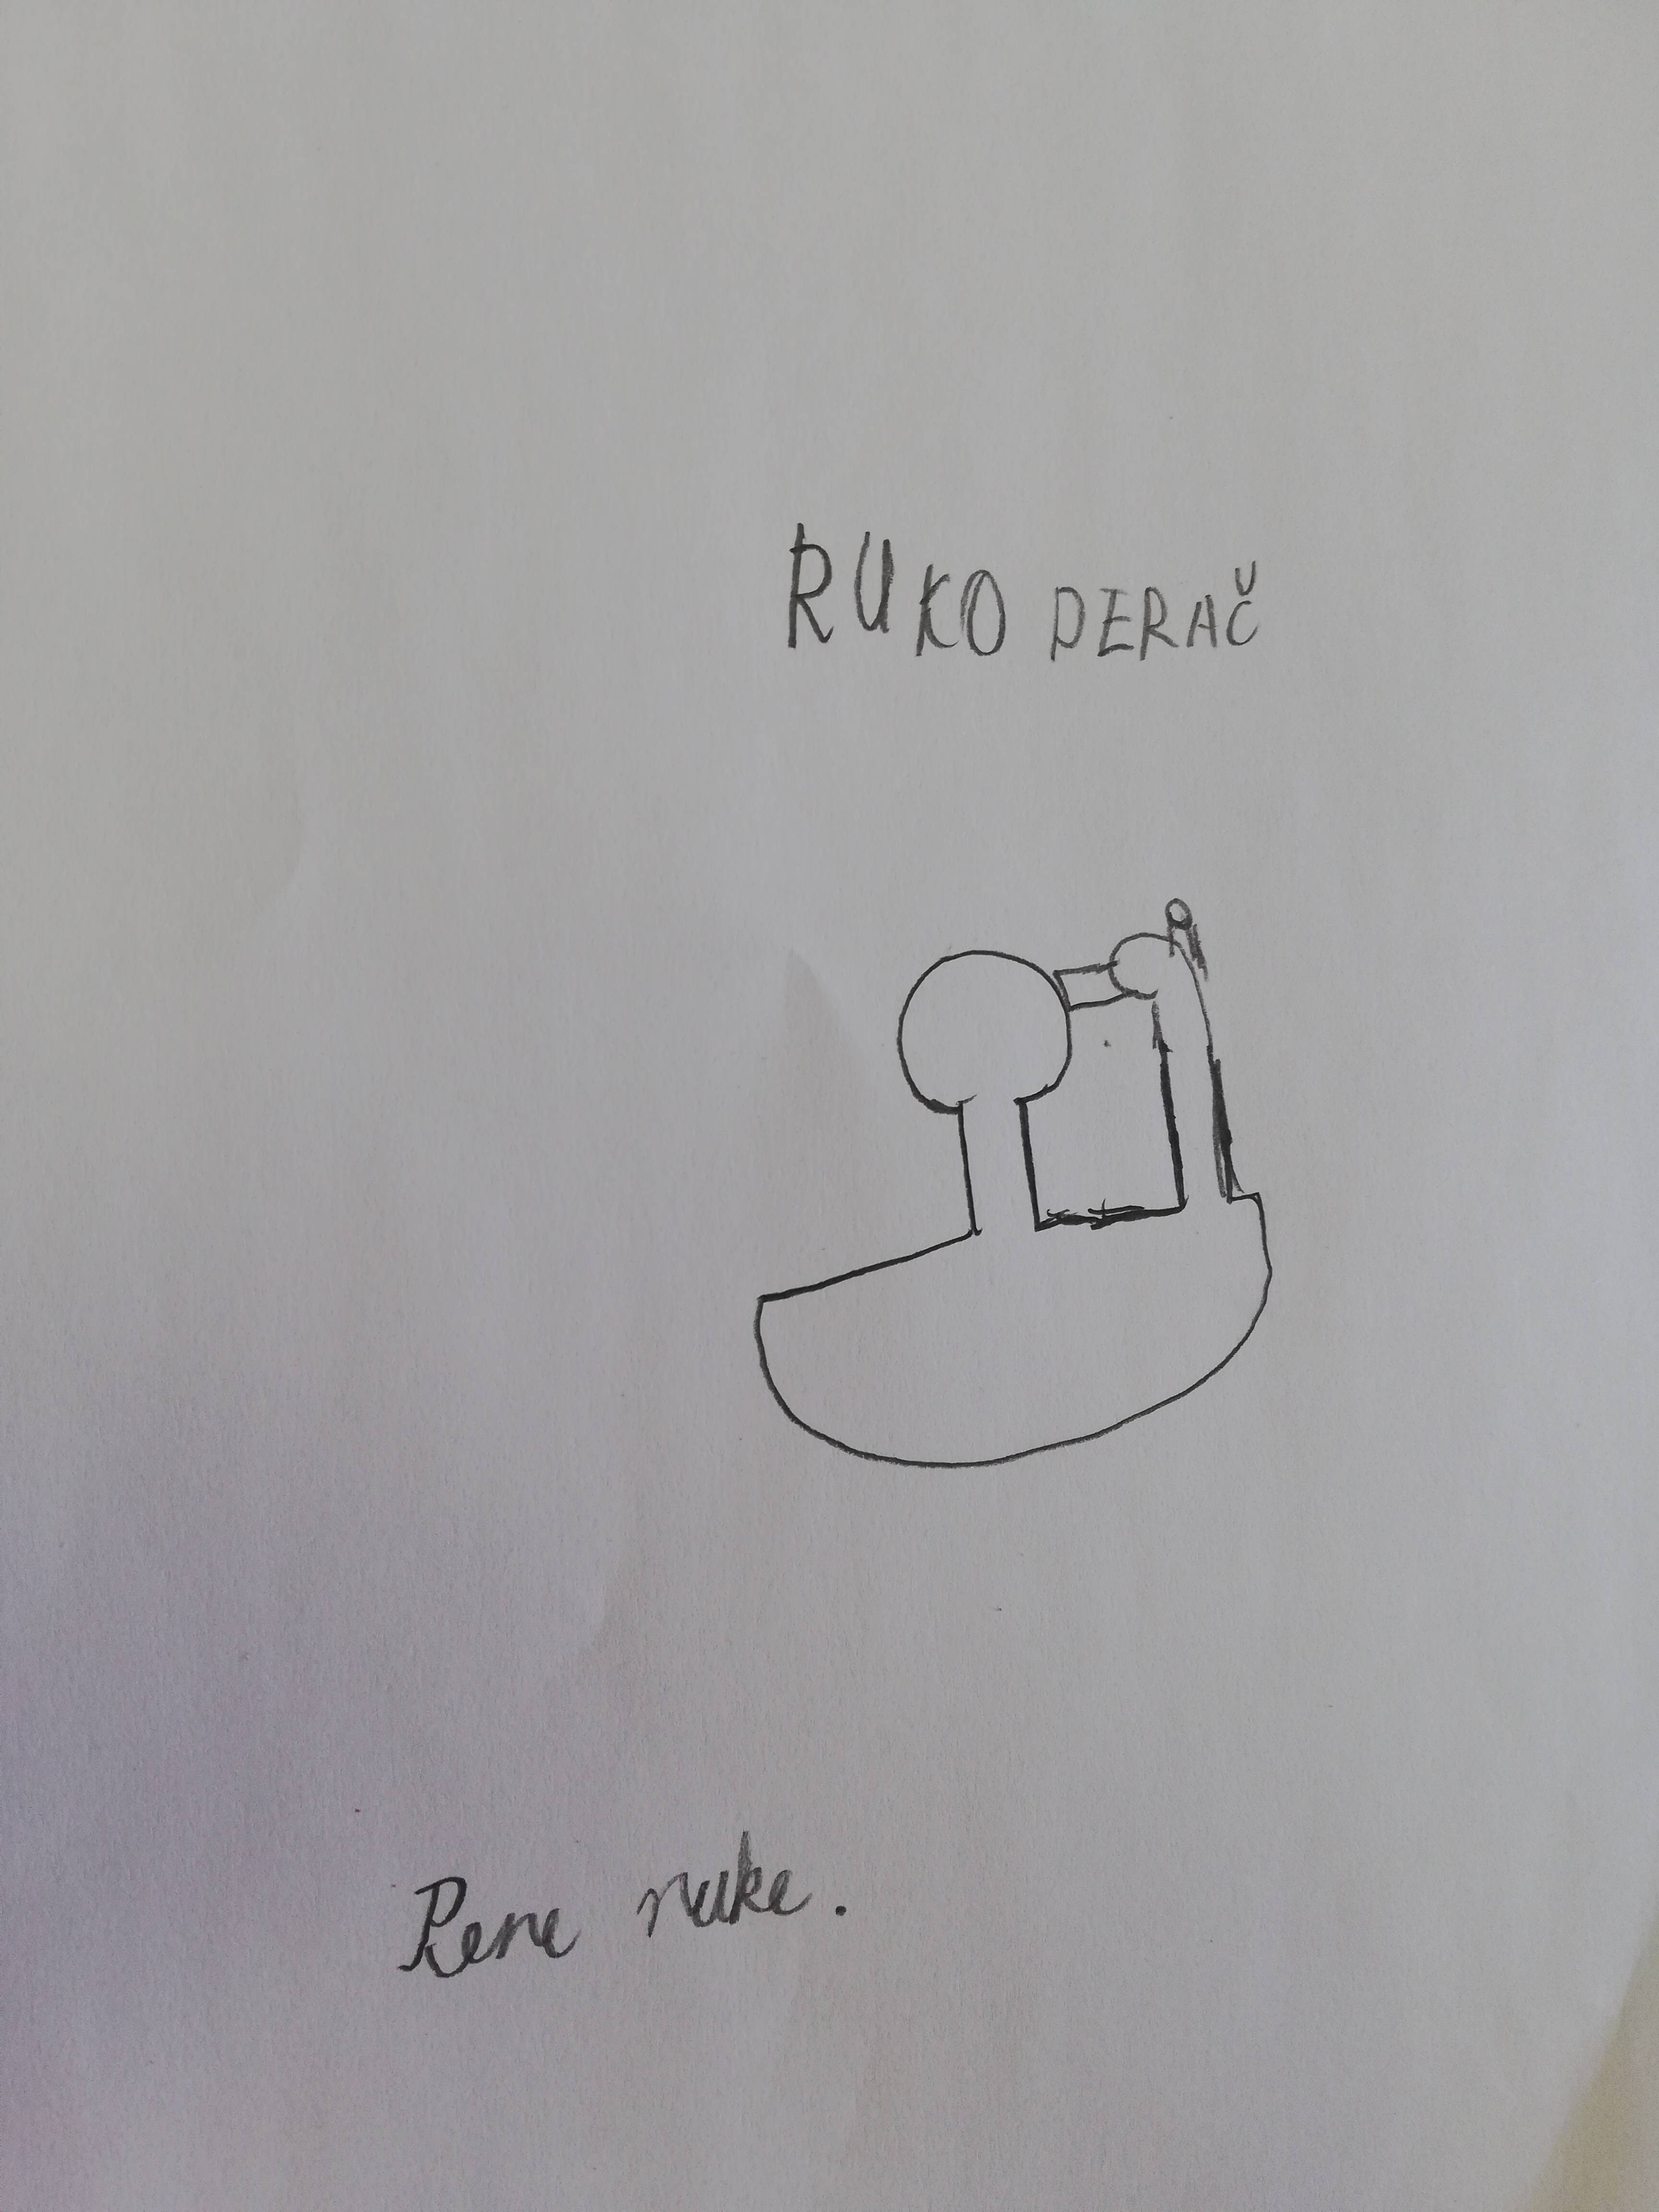 RUKO PERAČ
Pere ruke.